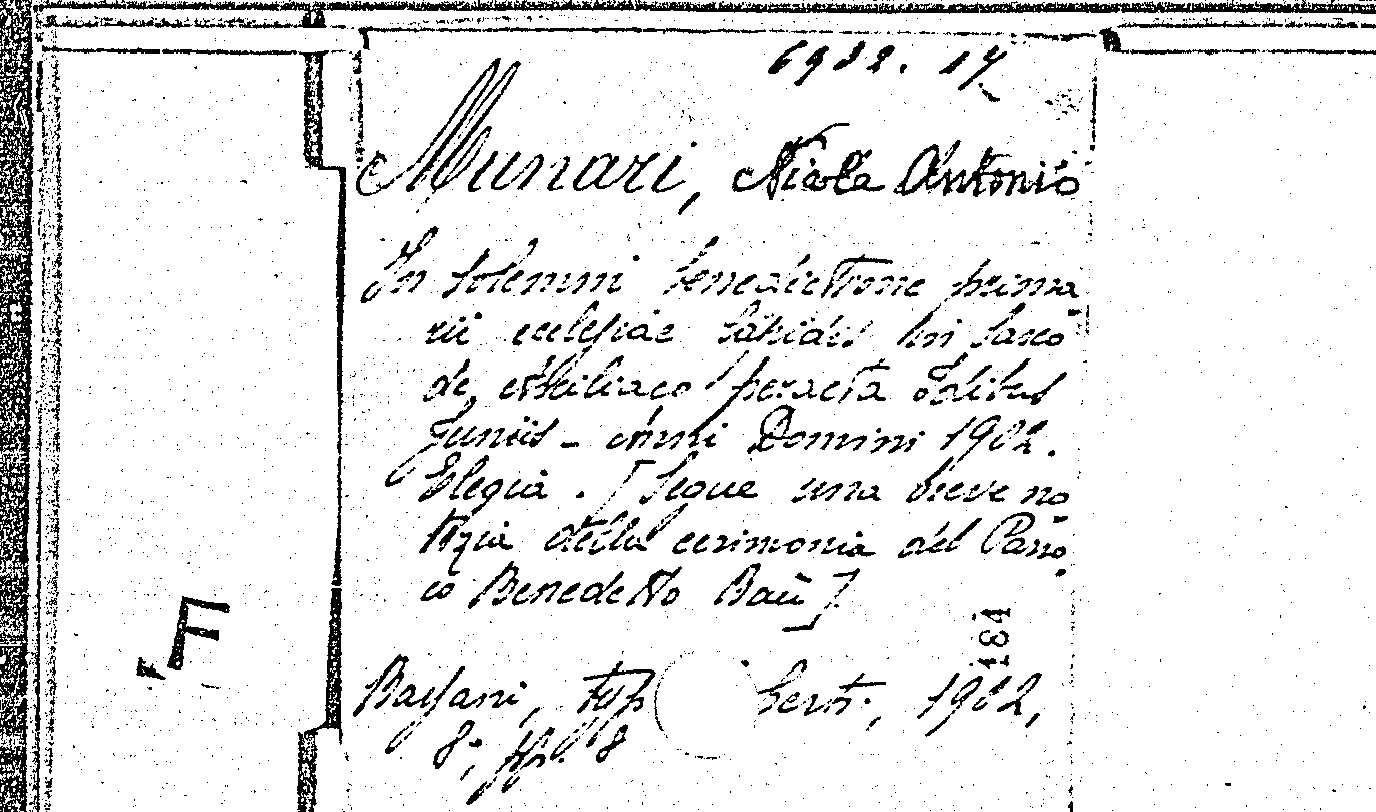 6932. 17
Munari, Nicola Antonio
In solemni benedictione prima
rii ecclesiae lapidis in Saxo
de peracta
Juniis - Anni Domini 1902.
Elegia. [Segue una breve no
tizia della cerimonia del Parro
co Benedetto Baù]
184
Bassani, typ berti, 1902,
8°, pp. 8
F